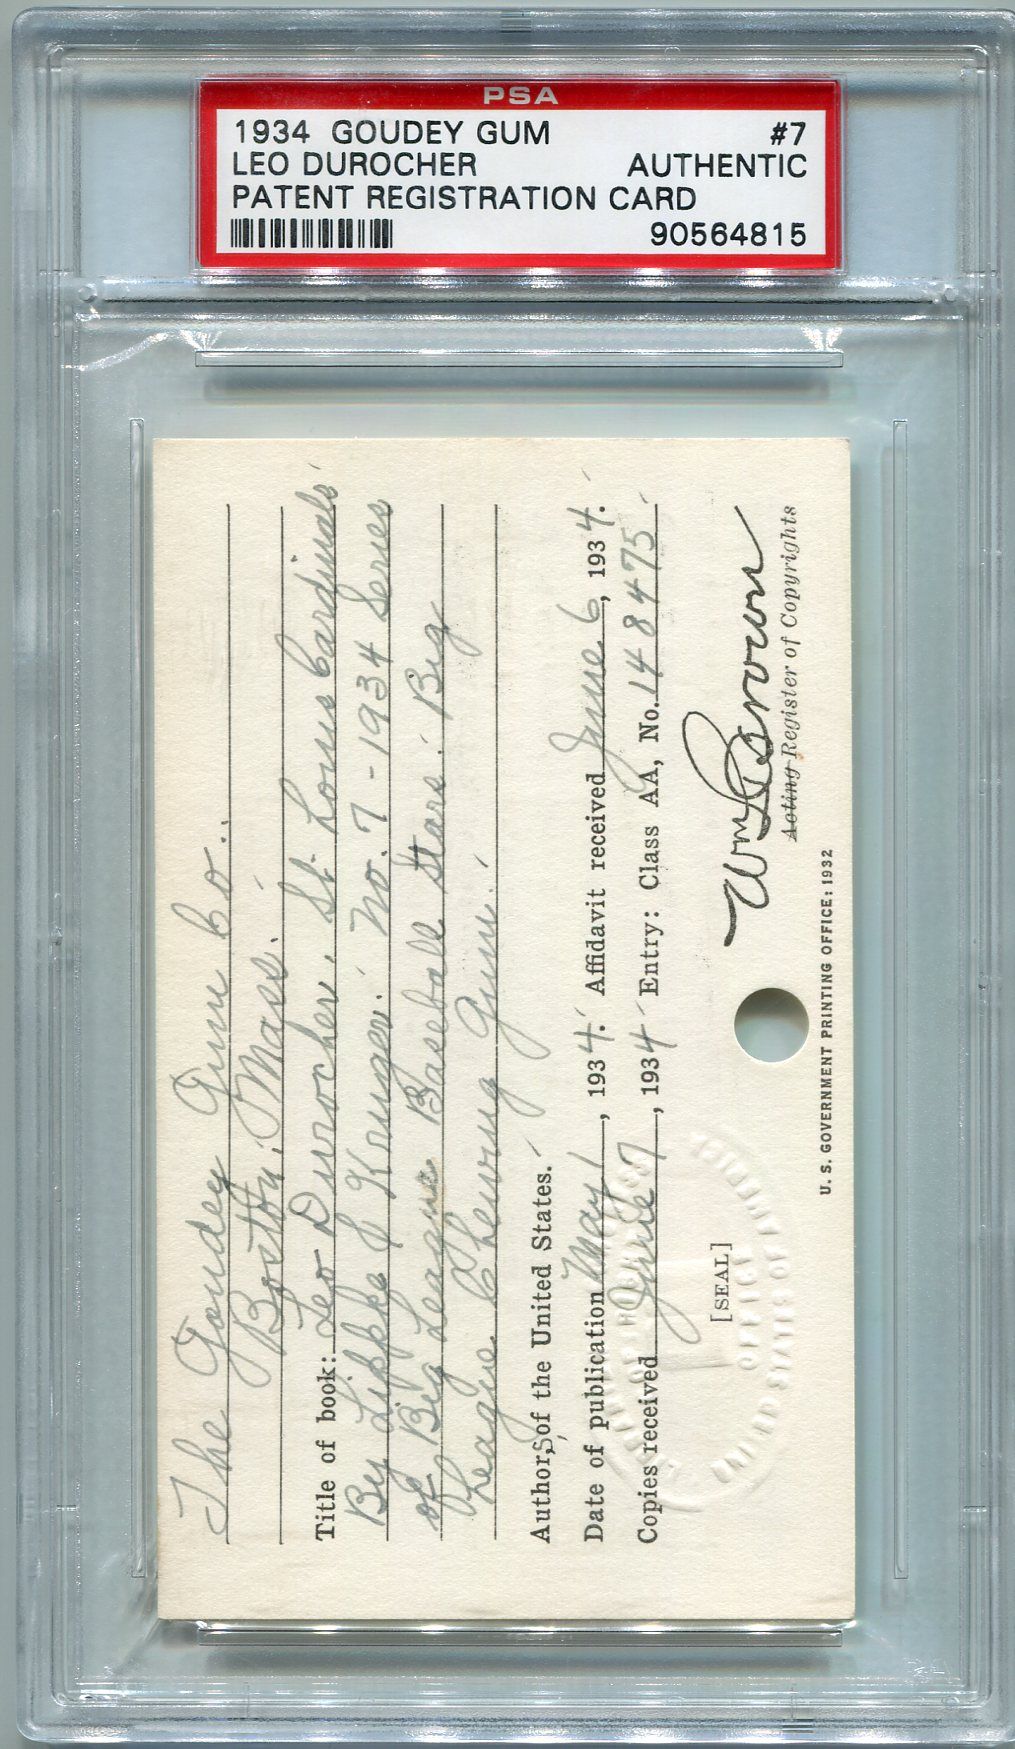 PSA
1934 GOUDEY GUM #7
LEO DUROCHER AUTHENTIC
PATENT REGISTRATION CARD
90564815
The Goudey Gum Co.,
Boston, Mass.
Title of book: Leo Durocher, St. Louis Cardinals
By Lipke & Kruger. No. 7 - 1934 Series
of Big League Baseball Stars. Big
League Chewing Gum.
Authors, of the United States.
Date of publication May 1, 1934. Affidavit received June 6, 1934.
Copies received June 7, 1934 Entry: Class AA, No. 148475
[SEAL] Wm L Brown
Acting Register of Copyrights
U. S. GOVERNMENT PRINTING OFFICE: 1932
COPYRIGHT OFFICE
UNITED STATES OF AMERICA